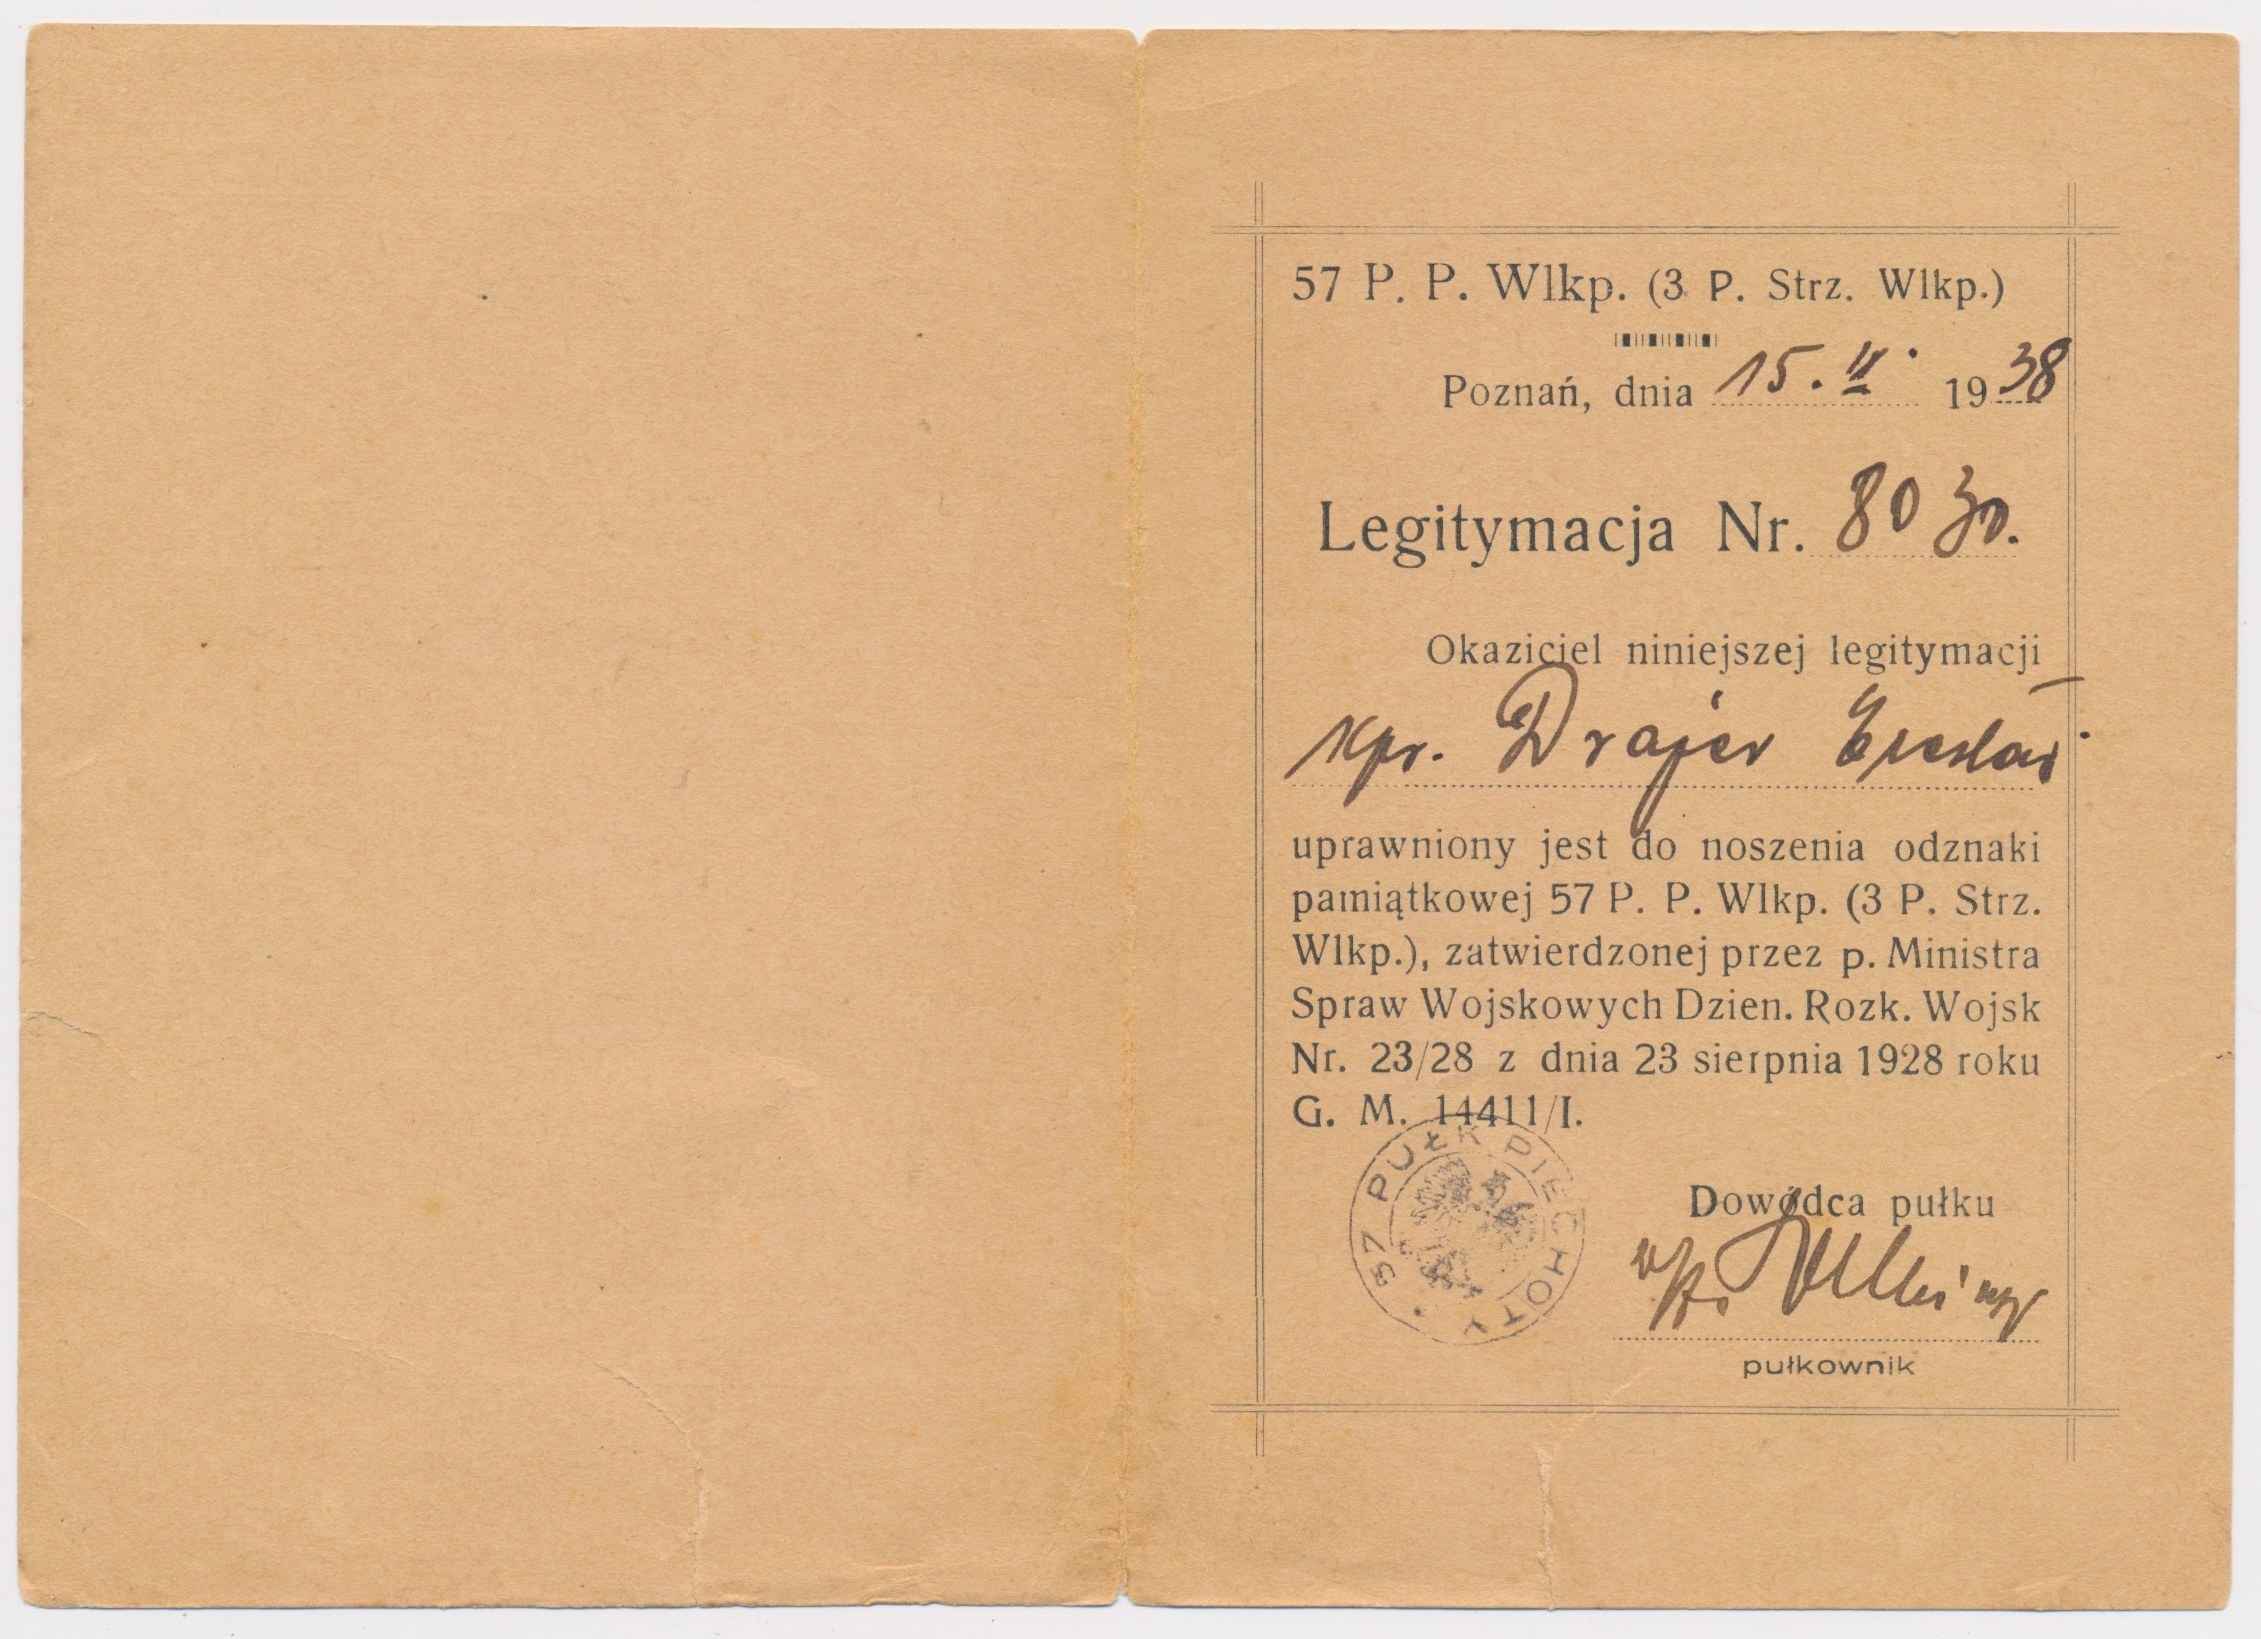 57 P. P. Wlkp. (3 P. Strz. Wlkp.)
Poznań, dnia 15. II. 1938
Legitymacja Nr. 8030.
Okaziciel niniejszej legitymacji
kpr. Drajer Czesław
uprawniony jest do noszenia odznaki
pamiątkowej 57 P. P. Wlkp. (3 P. Strz.
Wlkp.), zatwierdzonej przez p. Ministra
Spraw Wojskowych Dzien. Rozk. Wojsk
Nr. 23/28 z dnia 23 sierpnia 1928 roku
G. M. 14411/I.
57 PUŁK PIECHOTY
Dowódca pułku
pułkownik